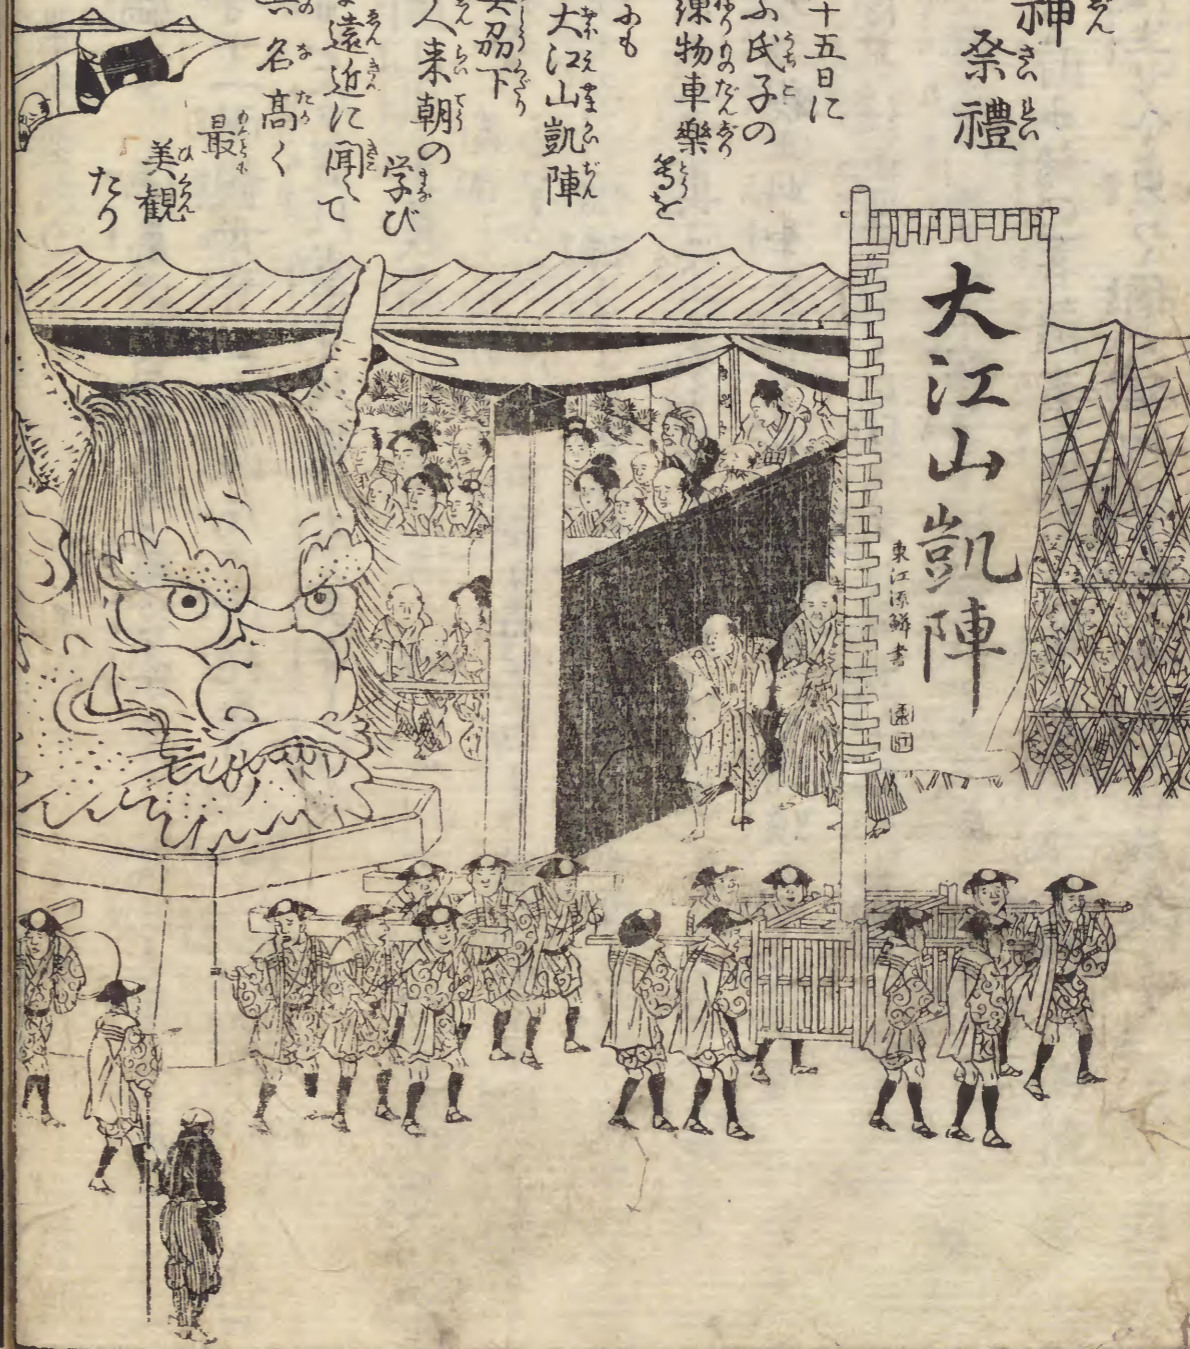 神
祭禮
十五日に
ふ氏子の
練物車樂
等を
にも
大江山凱陣
刕下
人来朝の
学び
遠近に聞えて
名高く
最
美観
たり
大江山凱陣
東江源鱗書